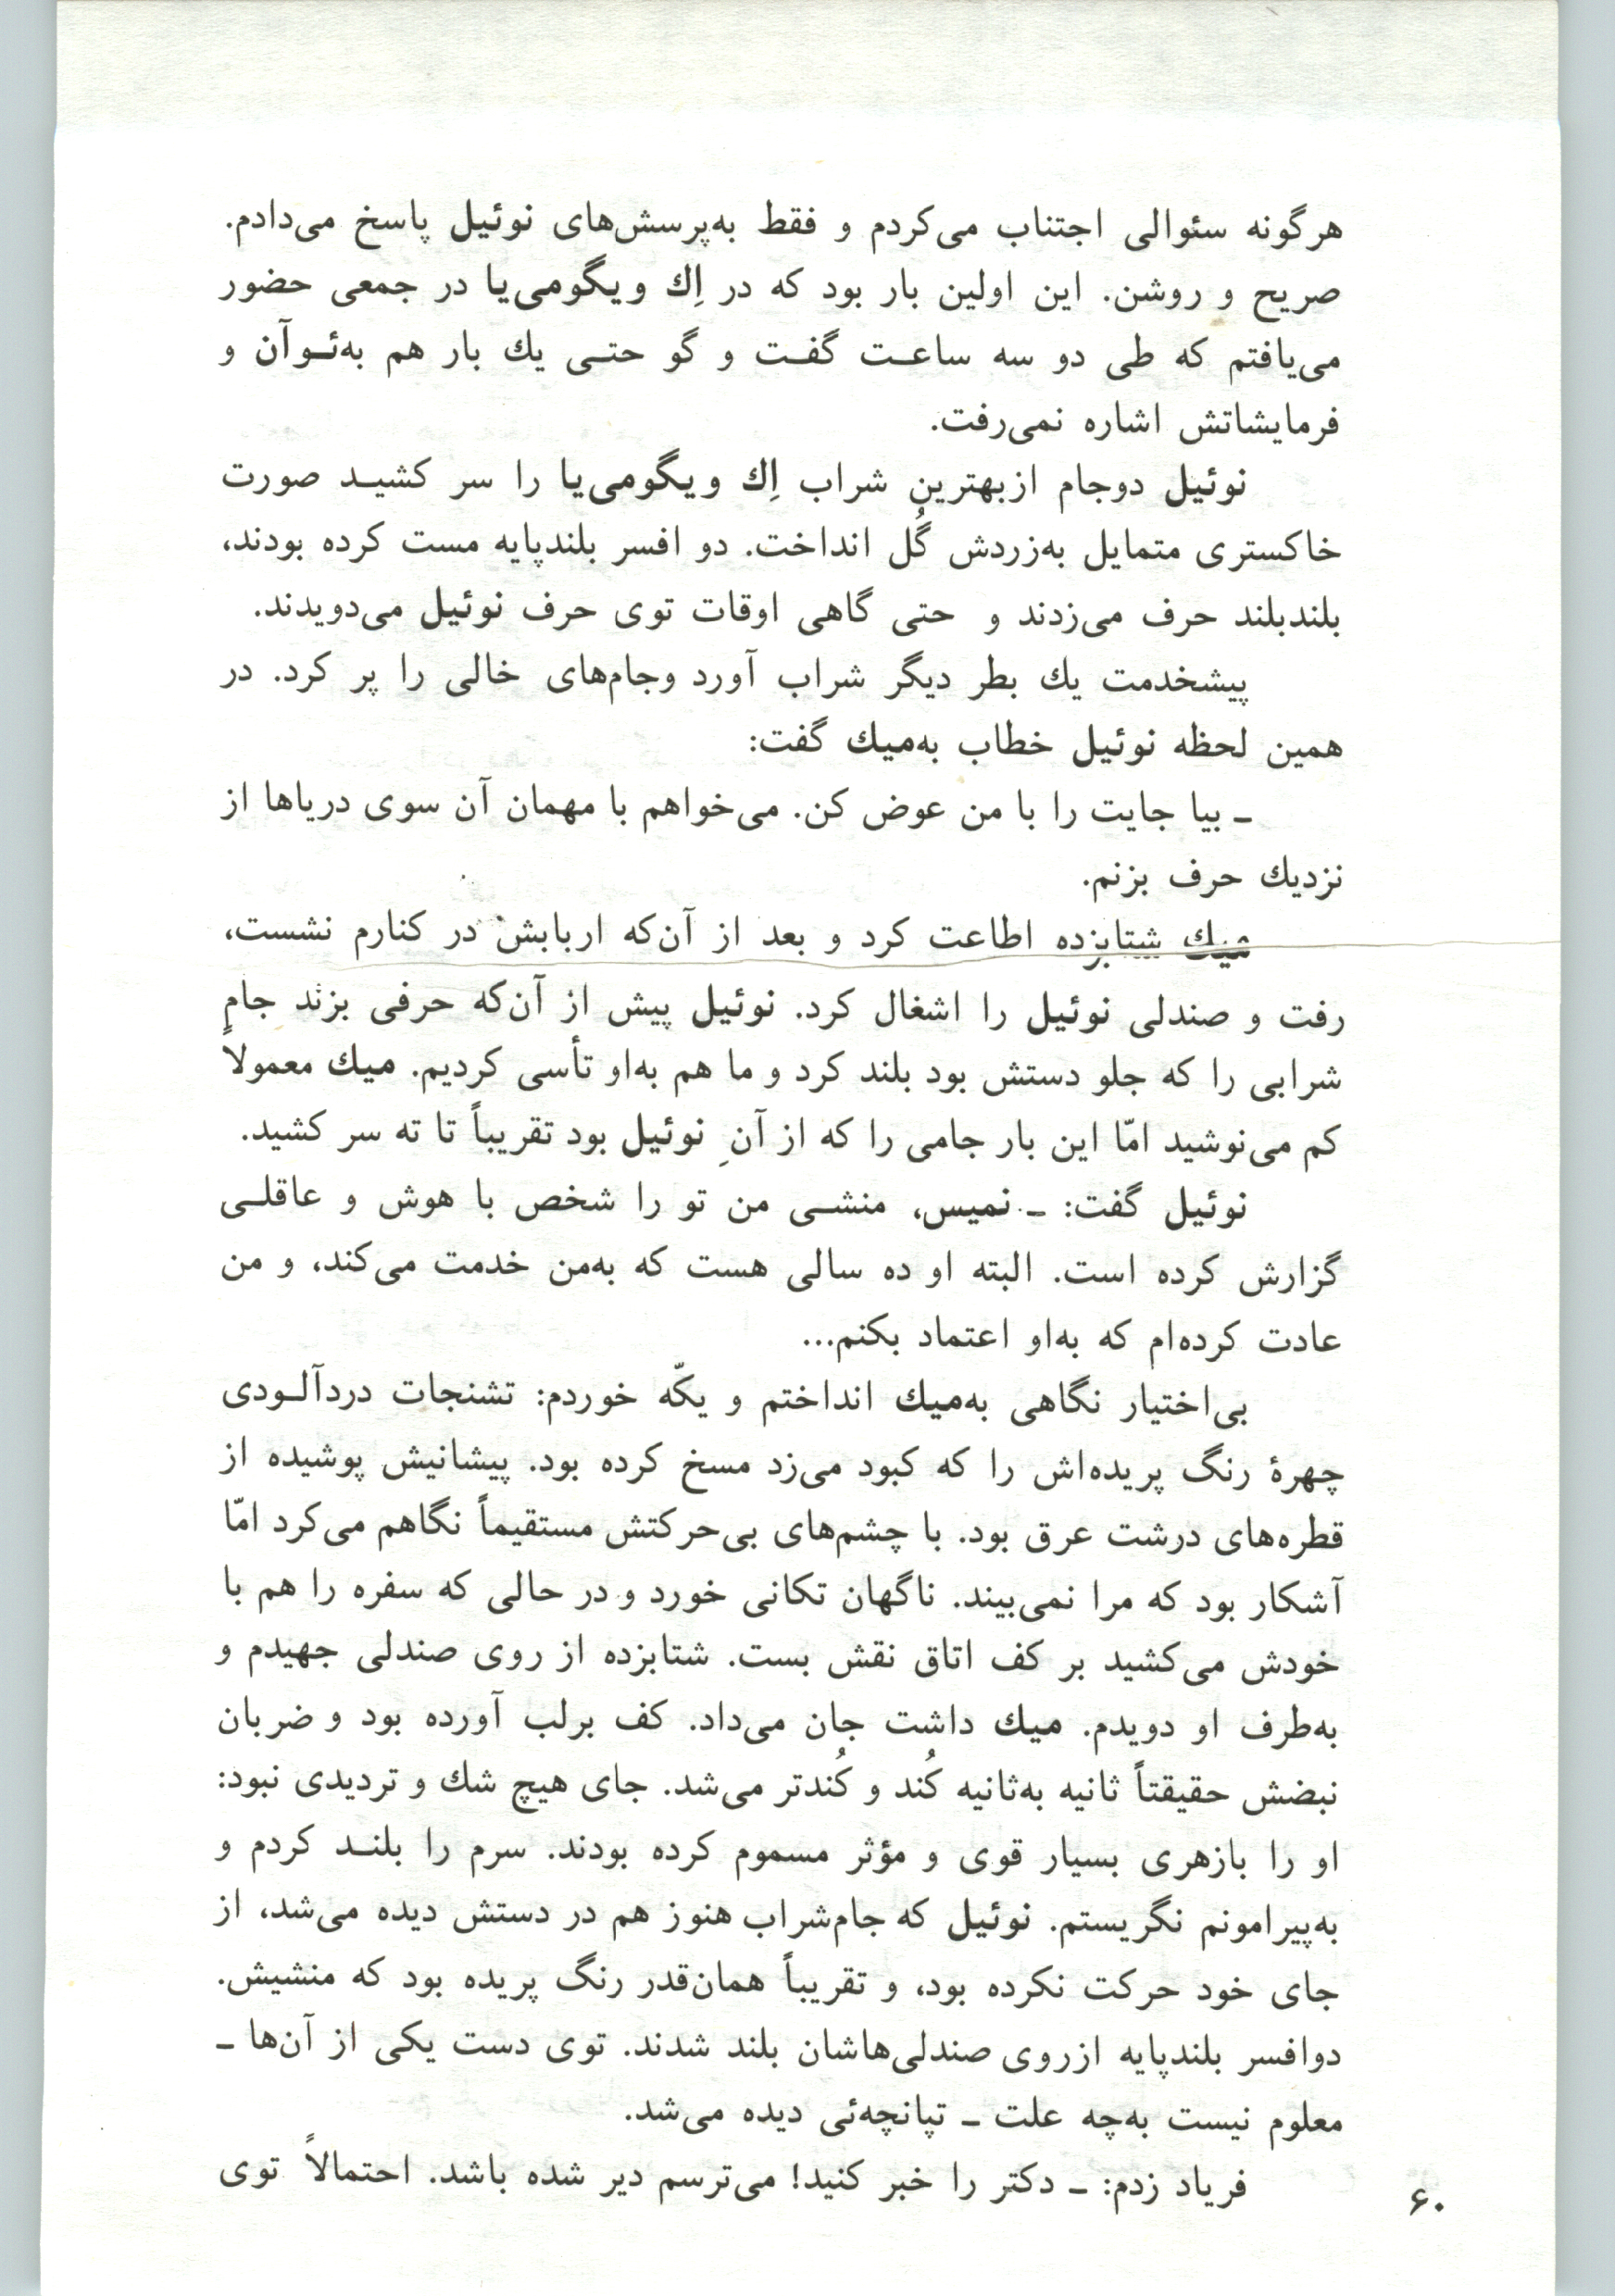 هرگونه سئوالی اجتناب می‌کردم و فقط به‌پرسش‌های نوئیل پاسخ می‌دادم.
صریح و روشن. این اولین بار بود که در اِك ویگومی‌یا در جمعی حضور
می‌یافتم که طی دو سه ساعت گفت و گو حتی یك بار هم به‌ئوآن و
فرمایشاتش اشاره نمی‌رفت.
نوئیل دوجام ازبهترین شراب اِك ویگومی‌یا را سر کشید صورت
خاکستری متمایل به‌زردش گُل انداخت. دو افسر بلندپایه مست کرده بودند،
بلندبلند حرف می‌زدند و حتی گاهی اوقات توی حرف نوئیل می‌دویدند.
پیشخدمت یك بطر دیگر شراب آورد وجام‌های خالی را پر کرد. در
همین لحظه نوئیل خطاب به‌میك گفت:
ـ بیا جایت را با من عوض کن. می‌خواهم با مهمان آن سوی دریاها از
نزدیك حرف بزنم.
میك شتابزده اطاعت کرد و بعد از آن‌که اربابش در کنارم نشست،
رفت و صندلی نوئیل را اشغال کرد. نوئیل پیش از آن‌که حرفی بزند جامِ
شرابی را که جلو دستش بود بلند کرد و ما هم به‌او تأسی کردیم. میك معمولاً
کم می‌نوشید امّا این بار جامی را که از آنِ نوئیل بود تقریباً تا ته سر کشید.
نوئیل گفت: ـ نمیس، منشی من تو را شخص با هوش و عاقلی
گزارش کرده است. البته او ده سالی هست که به‌من خدمت می‌کند، و من
عادت کرده‌ام که به‌او اعتماد بکنم...
بی‌اختیار نگاهی به‌میك انداختم و یکّه خوردم: تشنجات دردآلودی
چهرهٔ رنگ پریده‌اش را که کبود می‌زد مسخ کرده بود. پیشانیش پوشیده از
قطره‌های درشت عرق بود. با چشم‌های بی‌حرکتش مستقیماً نگاهم می‌کرد امّا
آشکار بود که مرا نمی‌بیند. ناگهان تکانی خورد و در حالی که سفره را هم با
خودش می‌کشید بر کف اتاق نقش بست. شتابزده از روی صندلی جهیدم و
به‌طرف او دویدم. میك داشت جان می‌داد. کف برلب آورده بود و ضربان
نبضش حقیقتاً ثانیه به‌ثانیه کُند و کُندتر می‌شد. جای هیچ شك و تردیدی نبود:
او را بازهری بسیار قوی و مؤثر مسموم کرده بودند. سرم را بلند کردم و
به‌پیرامونم نگریستم. نوئیل که جام‌شراب هنوز هم در دستش دیده می‌شد، از
جای خود حرکت نکرده بود، و تقریباً همان‌قدر رنگ پریده بود که منشیش.
دوافسر بلندپایه ازروی صندلی‌هاشان بلند شدند. توی دست یکی از آن‌ها ـ
معلوم نیست به‌چه علت ـ تپانچه‌ئی دیده می‌شد.
فریاد زدم: ـ دکتر را خبر کنید! می‌ترسم دیر شده باشد. احتمالاً توی
۶۰